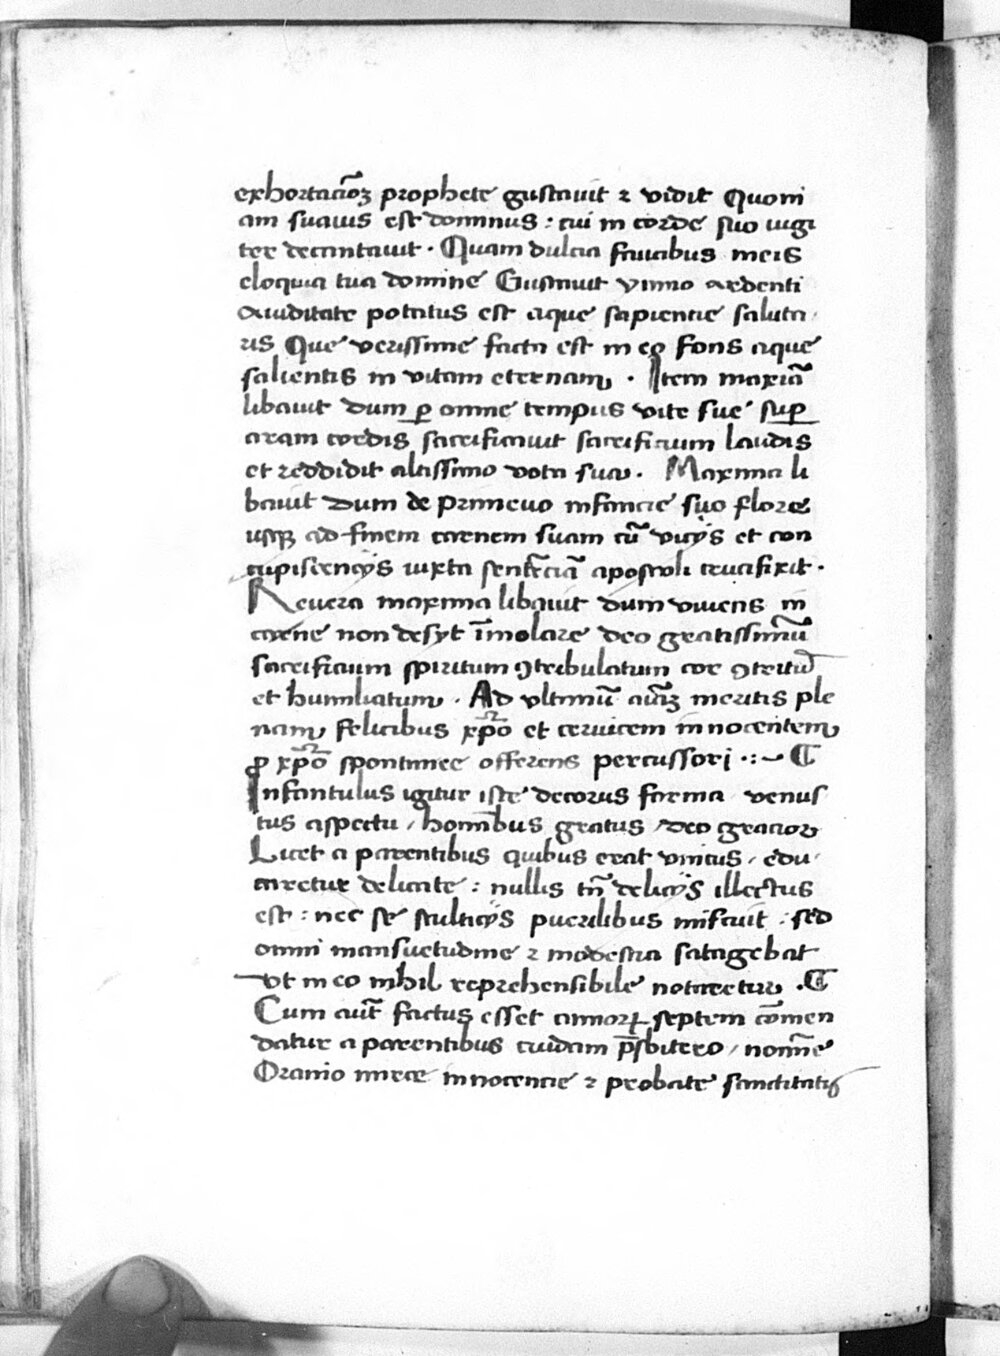 exhortac̄oꝫ prophete gustauit ⁊ vidit Quoni
am suauis est dominus : cui in corde suo iugi
ter decantauit . Quam dulcia faucibus meis
eloquia tua domine Gustauit ymno ardenti
Auiditate potatus est aque sapiencie saluta
ris Que verissime facta est in eo fons aque
salientis in vitam eternam . Item maxīa
libauit dum ꝑ omne tempus vite sue suꝑ
aram cordis sacrificauit sacrificium laudis
et reddidit altissimo vota sua . Maxima li
bauit dum de primeuo infancie suo flore
usqꝫ ad finem carnem suam cū vicijs et con
cupiscencijs iuxta sentēciā apostoli crucifixit .
Reuera maxima libauit dum viuens in
carne non desyt īmolare deo gratissimū
sacrificium spiritum ꝯtribulatum cor ꝯtritū
et humiliatum . Ad vltimū aūꝫ meritis ple
nam felicibus xp̄o et ceruicem innocentem
ꝓ xp̄o spontanee offerens percussori .:~ ¶
Infantulus igitur iste decorus forma venus
tus aspectu / homībus gratus / deo gracior
Licet a parentibus quibus erat vnicus / edu
caretur delicate : nullis tn̄ delicijs illectus
est : nec se stulticijs puerilibus miscuit : sed
omni mansuetudine ⁊ modestia satagebat
vt in eo nihil reprehensibile notaretur . ¶
Cum aut̄ factus esset annoꝝ septem cōmen
datur a parentibus cuidam p̄sbitero / nomīe
Oranio mire innocencie ⁊ probate sanctitatis